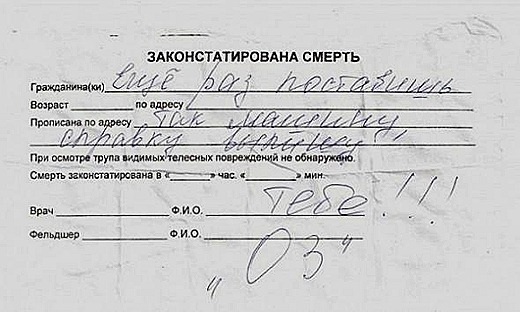 ЗАКОНСТАТИРОВАНА СМЕРТЬ
Гражданина(ки) ещё раз поставишь
Возраст по адресу
Прописана по адресу так машину,
справку выпишу
При осмотре трупа видимых телесных повреждений не обнаружено.
Смерть законстатирована в «____» час. «____» мин.
тебе!!!
Врач ____ Ф.И.О. ____
Фельдшер ____ Ф.И.О.
"03"